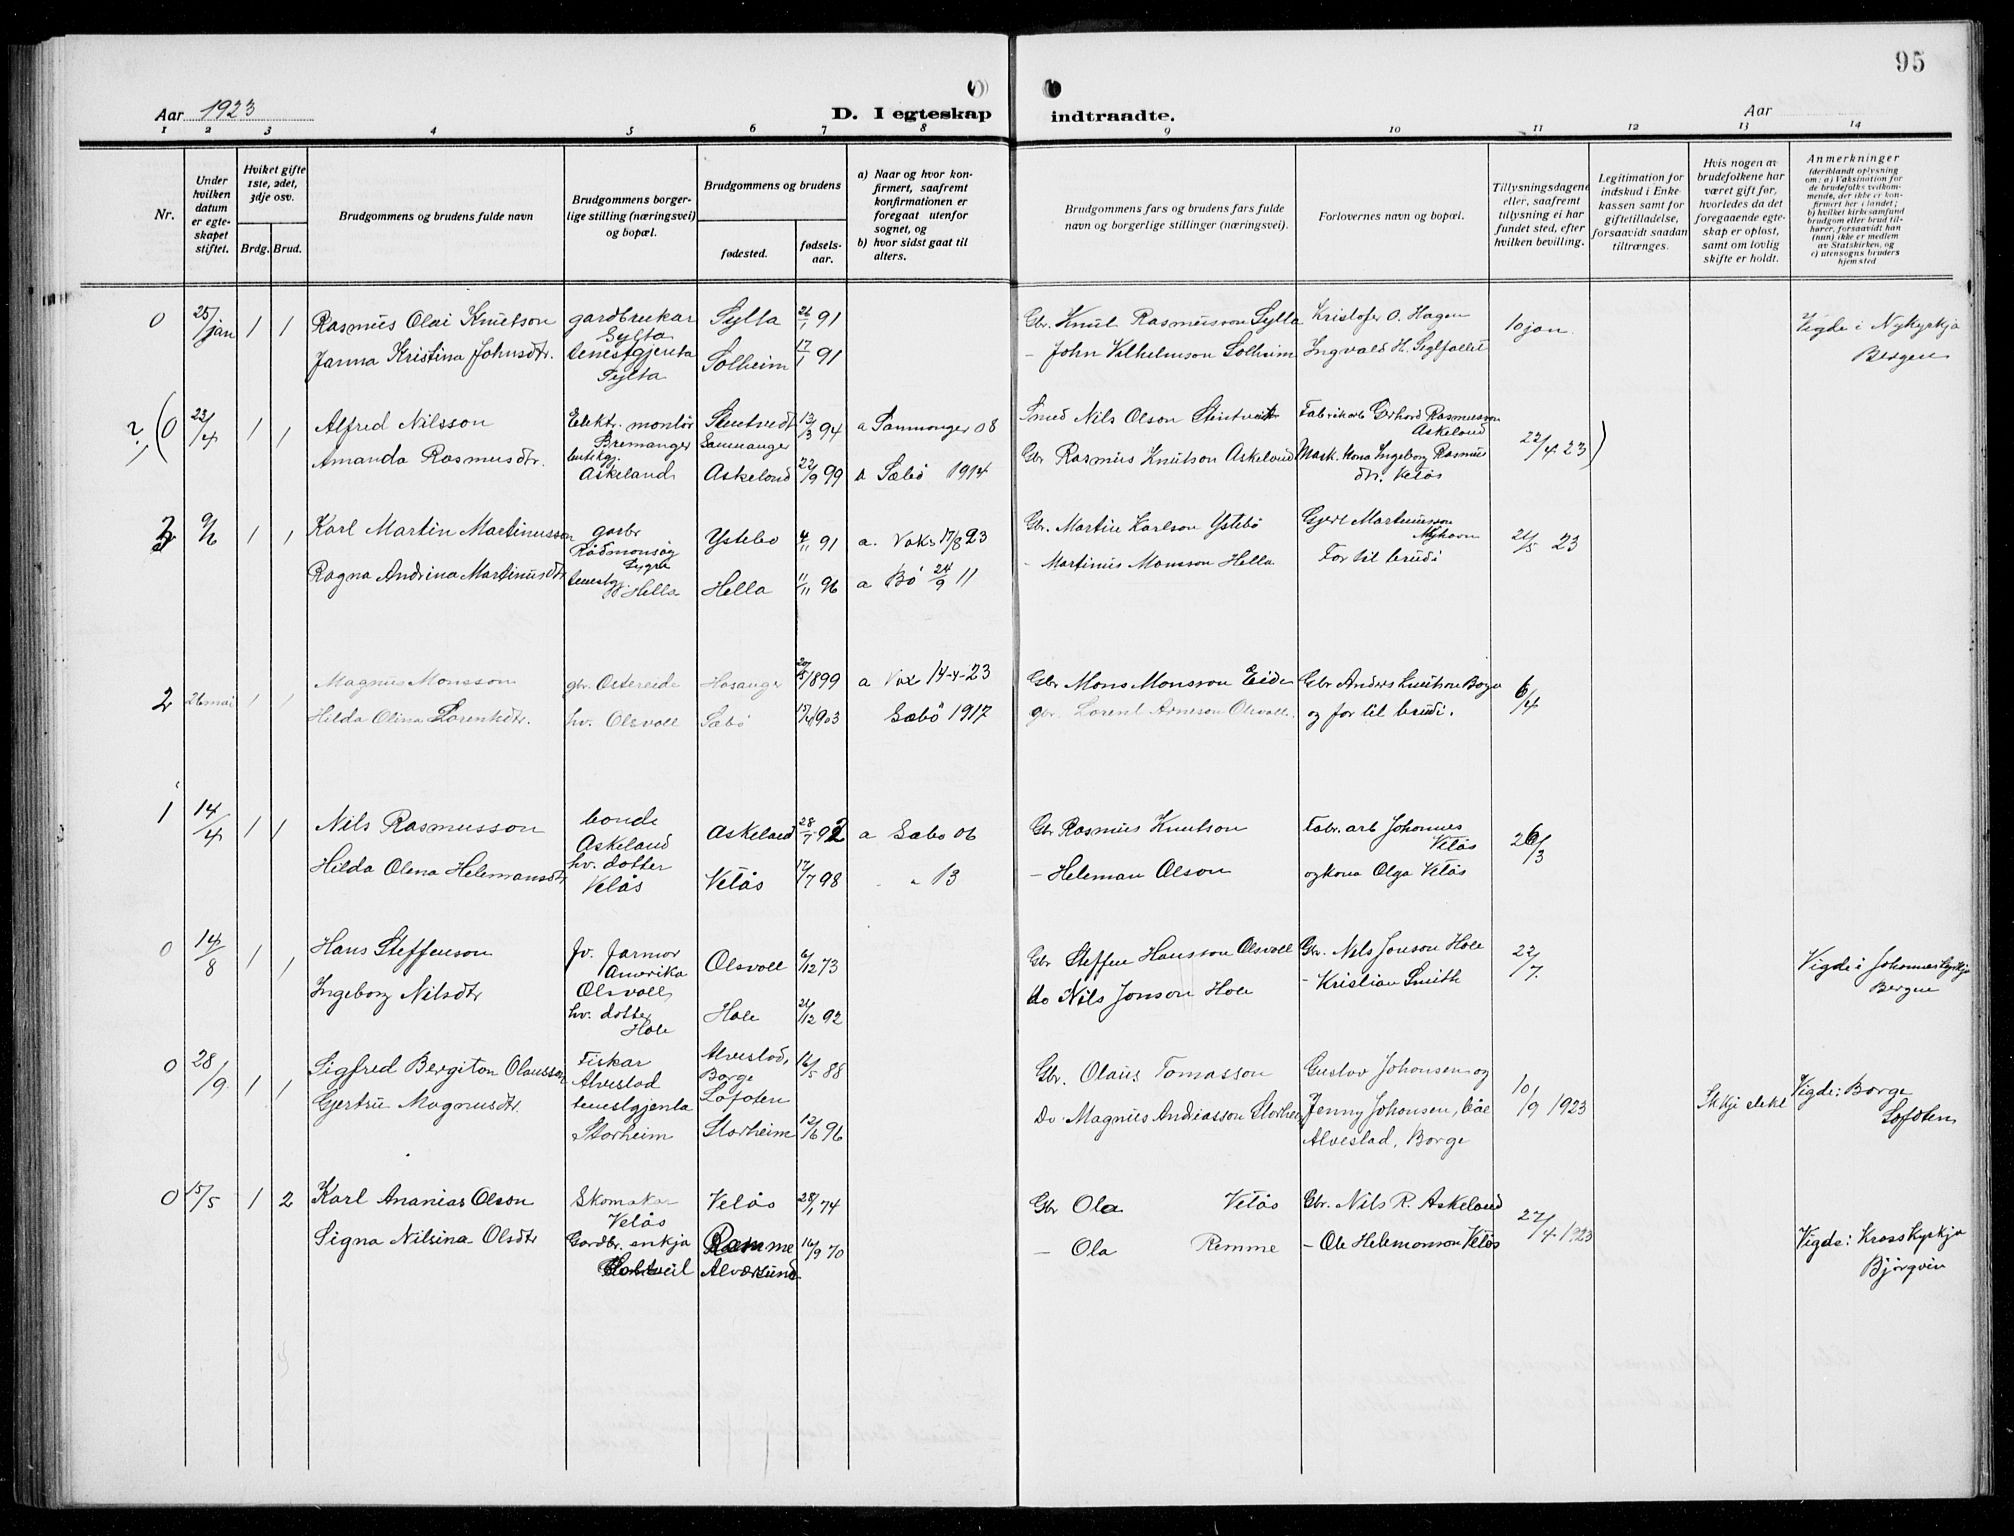 95
Aar 1923
D. I egteskap indtraadte.
Aar
1 2 3 4 5 6 7 8 9 10 11 12 13 14
Nr.
Under hvilken datum er egteskapet stiftet.
Hviket gifte 1ste, 2det, 3dje osv.
Brdg. Brud.
Brudgommens og brudens fulde navn
Brudgommens borgerlige stilling (næringsvei) og bopæl.
Brudgommens og brudens
fødested.
fødselsaar.
a) Naar og hvor konfirmert, saafremt konfirmationen er foregaat utenfor sognet, og
b) hvor sidst gaat til alters.
Brudgommens fars og brudens fars fulde navn og borgerlige stillinger (næringsvei).
Forlovernes navn og bopæl.
Tillysningsdagene eller, saafremt tillysning ei har fundet sted, efter hvilken bevilling.
Legitimation for indskud i Enkekassen samt for giftetilladelse, forsaavidt saadan tiltrænges.
Hvis nogen av brudefolkene har været gift før, hvorledes da det foregaaende egteskap er opløst, samt om lovlig skifte er holdt.
Anmerkninger (deriblandt oplysning om: a) Vaksination for de brudefolks vedkommende, der ikke er konfirmert her i landet; b) hvilket kirkesamfund brudgom eller brud tilhører, forsaavidt han (hun) ikke er medlem av Statskirken, og c) utensogns bruders hjemsted
0 25/jan 1 1 Rasmus Olai Knutson gardbrukar Sylta Sylta 26/1 91 Gbr. Knut Rasmusson Sylta Kristofer O. Hagen 10 jan. Vigde i Nykyrkja Bergen
Janna Kristina Johnsdtr. tenestgjenta Sylta Solheim 17/1 91 - John Vilhelmson Solheim Ingvald H. Seglfallet
? (0 23/4 1 1 Alfred Nilsson Elektr. montør Bremanger Stentvedt Samnanger 13/3 94 a Samnanger 08 Smed Nils Olson Stentveit Fabrikarb Gerhard Rasmusson Askeland 22/4 23)
Amanda Rasmusdtr. Askeland Askeland 22/9 99 a Sæbø 1914 Gbr Rasmus Knutson Askeland Mask. kona Ingeborg Rasmusdtr. Vetås
3 9/6 1 1 Karl Martin Martinusson garbr Rødmonsøy Lygra Ystebø 4/11 91 a. Vaks 17/8 23 Gbr. Martin Karlson Ystebø Gjert Martinusson Myhavn 21/5 23
Ragna Andrina Martinusdtr tenestgj. Hella Hella 11/11 96 a Bø 24/9 11 - Martinus Monsson Hella Far til brudi
2 26 mai 1 1 Magnus Monsson gbr. Ostereide Hosanger 20/5 1899 a Vax 14-4-23 Gbr Mons Monsson Eide Gbr Anders Knutson Boge 6/4
Hilda Olina Lorentsdtr. hv. Olsvoll Sæbø 17/4 1903 Sæbø 1917 gbr. Lorent Arneson Olsvoll. og far til brudi.
1 14/4 1 1 Nils Rasmusson bonde Askeland Askeland 28/7 92 a Sæbø 06 Gbr Rasmus Knutson Fabr. arb Johannes Vetås 26/3
Hilda Olena Helemansdtr hv. dotter Vetås Vetås 17/7 98 " 13 - Heleman Olson og kona Olga Vetås
0 14/8 1 1 Hans Steffenson fv. farmor Amerika Olsvoll Olsvoll 6/12 73 Gbr Steffen Hansson Olsvoll Gbr. Nils Jonson Hole 22/7. Vigde i Johanneskyrkja Bergen
Ingeborg Nilsdtr hv. dotter Hole Hole 21/12 92 do Nils Jonson Hole - Kristian Smith
0 28/9 1 1 Sigfred Bergiton Olausson Fiskar Alvestad Alvestad, Borge Lofoten 16/5 88 Gbr. Olaus Tomasson Gustav Johansen og 10/9 1923 Vigde: Borge Lofoten
Gertru Magnusdtr. tenestgjenta Storheim Storheim 12/6 96 Do Magnus Andreasson Storheim Jenny Johansen, båe Alvestad, Borge
0 15/5 1 2 Karl Ananias Olson Skomakar Vetås Vetås 28/1 74 Gbr Ola Vetås Gbr. Nils R. Askeland 27/4 1923
Signa Nilsina Olsdtr Gardbr. enkja Remme Alversund 16/9 70 - Ola Remme - Ole Helemonson Vetås Vigde: Krosskyrkja Bjørgvin